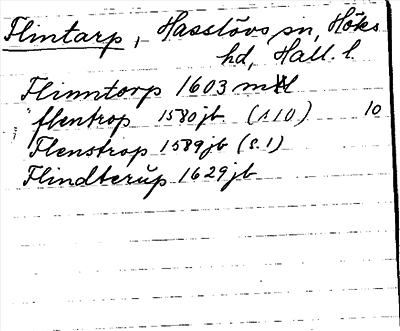 Flintarp, Hasslövs sn, Höks
hd, Hall. l.
Flinntorp 1603 
flentrop 1580 jb (110) 10
Flenstrop 1589 jb (s. 1)
Flindterup 1629 jb